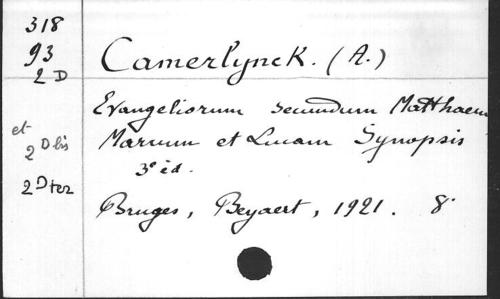 318
93
2 D
et
2 D bis
2 D ter
Camerlynck. (A.)
Evangeliorum secundum Matthaeum
Marcum et Lucam Synopsis
3e éd.
Bruges, Beyaert, 1921. 8°